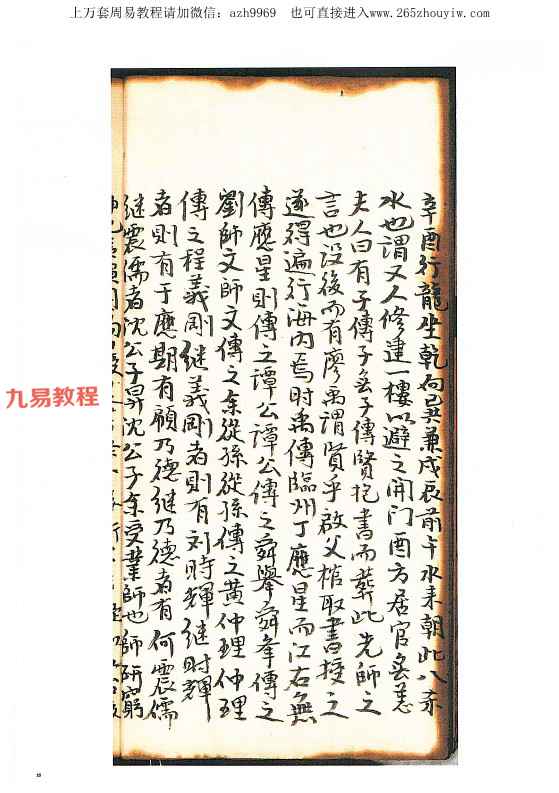 上万套周易教程请加微信：azh9969　也可直接进入www.265zhouyiw.com
辛酉行龍坐乾向巽兼戌辰前午水来朝此八殺
水也謂又人修建一樓以避之開门酉方居官無恙
夫人曰有子傳子無子傳賢抱書而葬此先師之
言也没後而有廖禹謂賢乎啟父棺取書授之
遂得遍行海内焉时禹傳臨州丁應星而江右無
傳應星則傳之譚公譚公傳之舜舉舜峯傳之
劉師文師文傳之余從孫從孫傳之黄仲理仲理
傳之程義剛继義剛者則有刘時輝继时輝
者則有于應期有顧乃德继乃德者有何震儒
继震儒者沈公子昇沈公子余受業師也師研窮
九易教程